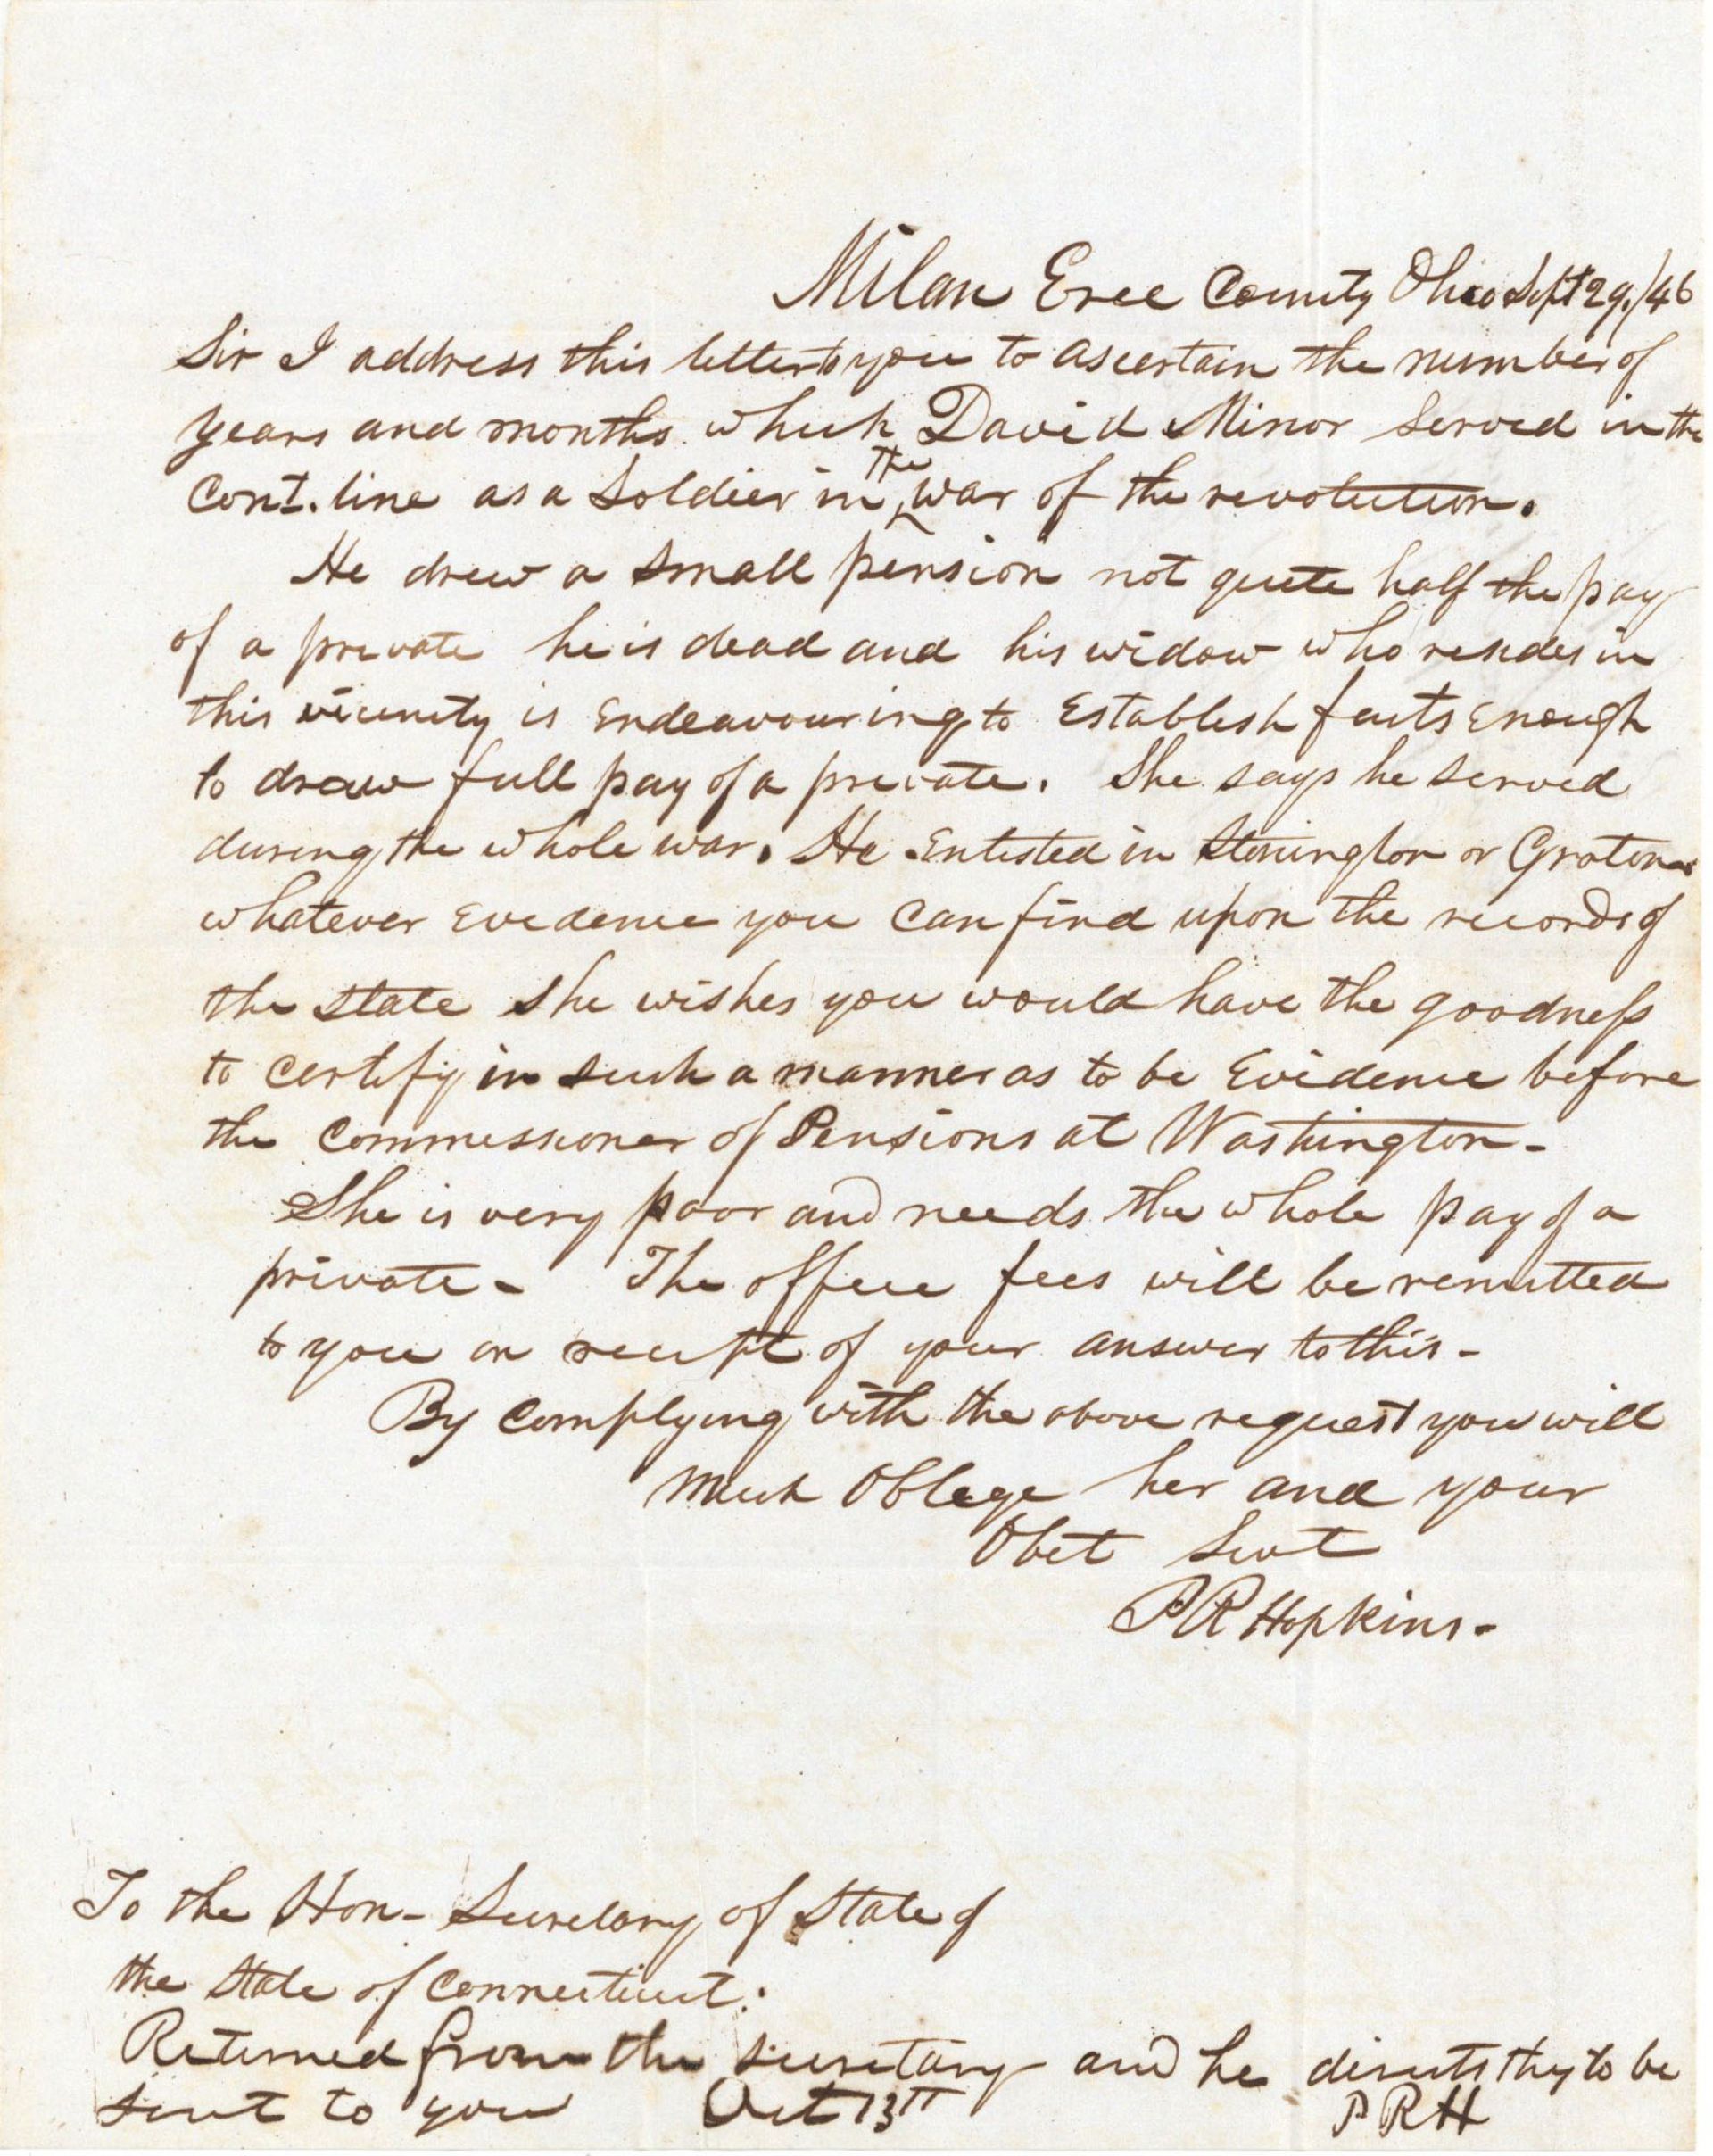 Milan Eree County Ohio Sept 29./46
Sir I address this letter to you to ascertain the number of
years and months which David Minor Served in the
Cont. line as a Soldier in the war of the revolution.
He drew a small pension not quite half the pay
of a private he is dead and his widow who resides in
this vicinity is Endeavouring to Establish facts Enough
to draw full pay of a private. She says he served
during the whole war. He Enlisted in Stonington or Groton
whatever Evidence you can find upon the records of
the State She wishes you would have the goodness
to certify in such a manner as to be Evidence before
the Commissioner of Pensions at Washington-
She is very poor and needs the whole pay of a
private- The office fees will be remitted
to you on receipt of your answer to this-
By Complying with the above request you will
Much Oblege her and your
Obet Svnt
P R Hopkins-
To the Hon- Secretary of State of
the State of Connecticut:
Returned from the Secretary and he directs they to be
sent to you Oct 13th
P R H